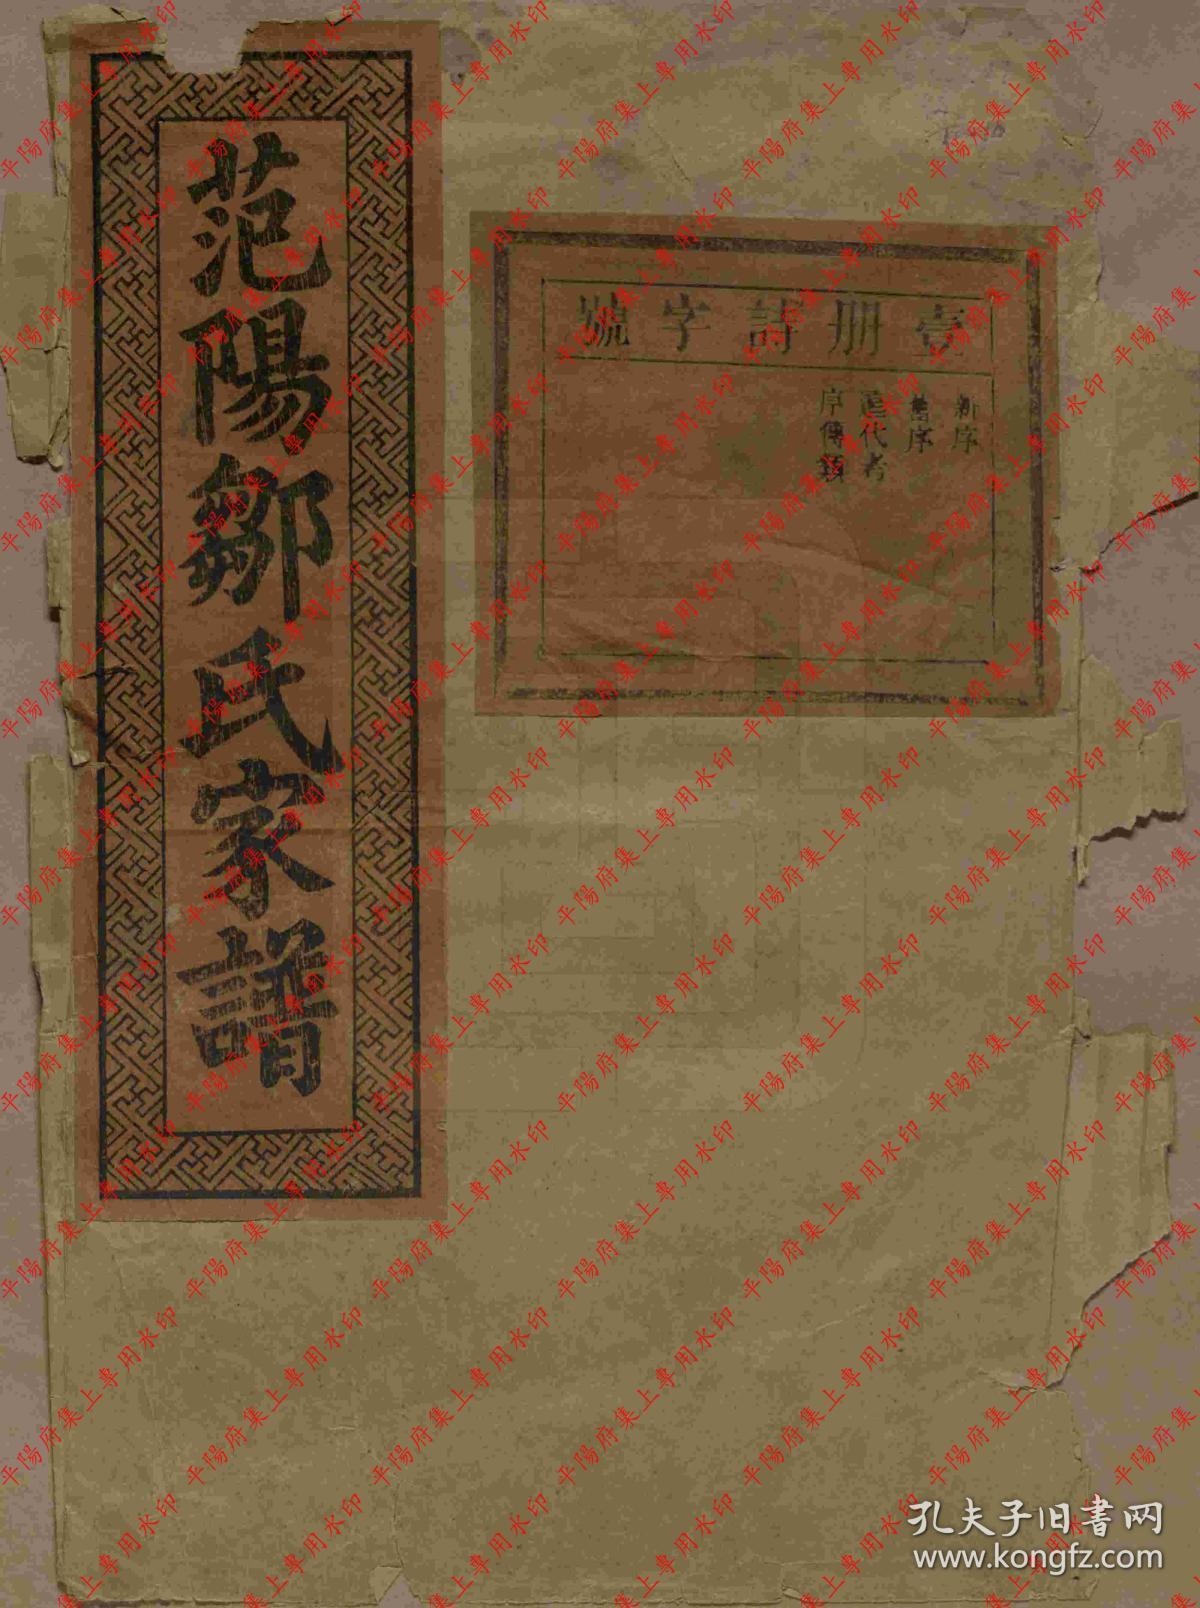 范陽鄒氏家譜
壹册詩字號
新序
舊序
歷代考
序傳類
平陽府集上專用水印
孔夫子旧書网
www.kongfz.com